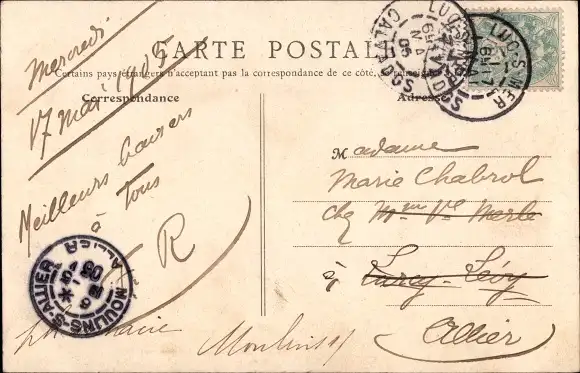 CARTE POSTALE
Certains pays étrangers n'acceptant pas la correspondance de ce côté,
Correspondance
Adresse
Mercredi
17 mai 1905
Meilleurs baisers
à tous
R
Madame
Marie Chabrol
chez Mme Vve Merle
à Lurcy-Lévy
Allier
Moulins
LUC-S-MER
CALVADOS
LUC-S-MER
CALVADOS
MOULINS-S-ALLIER
ALLIER